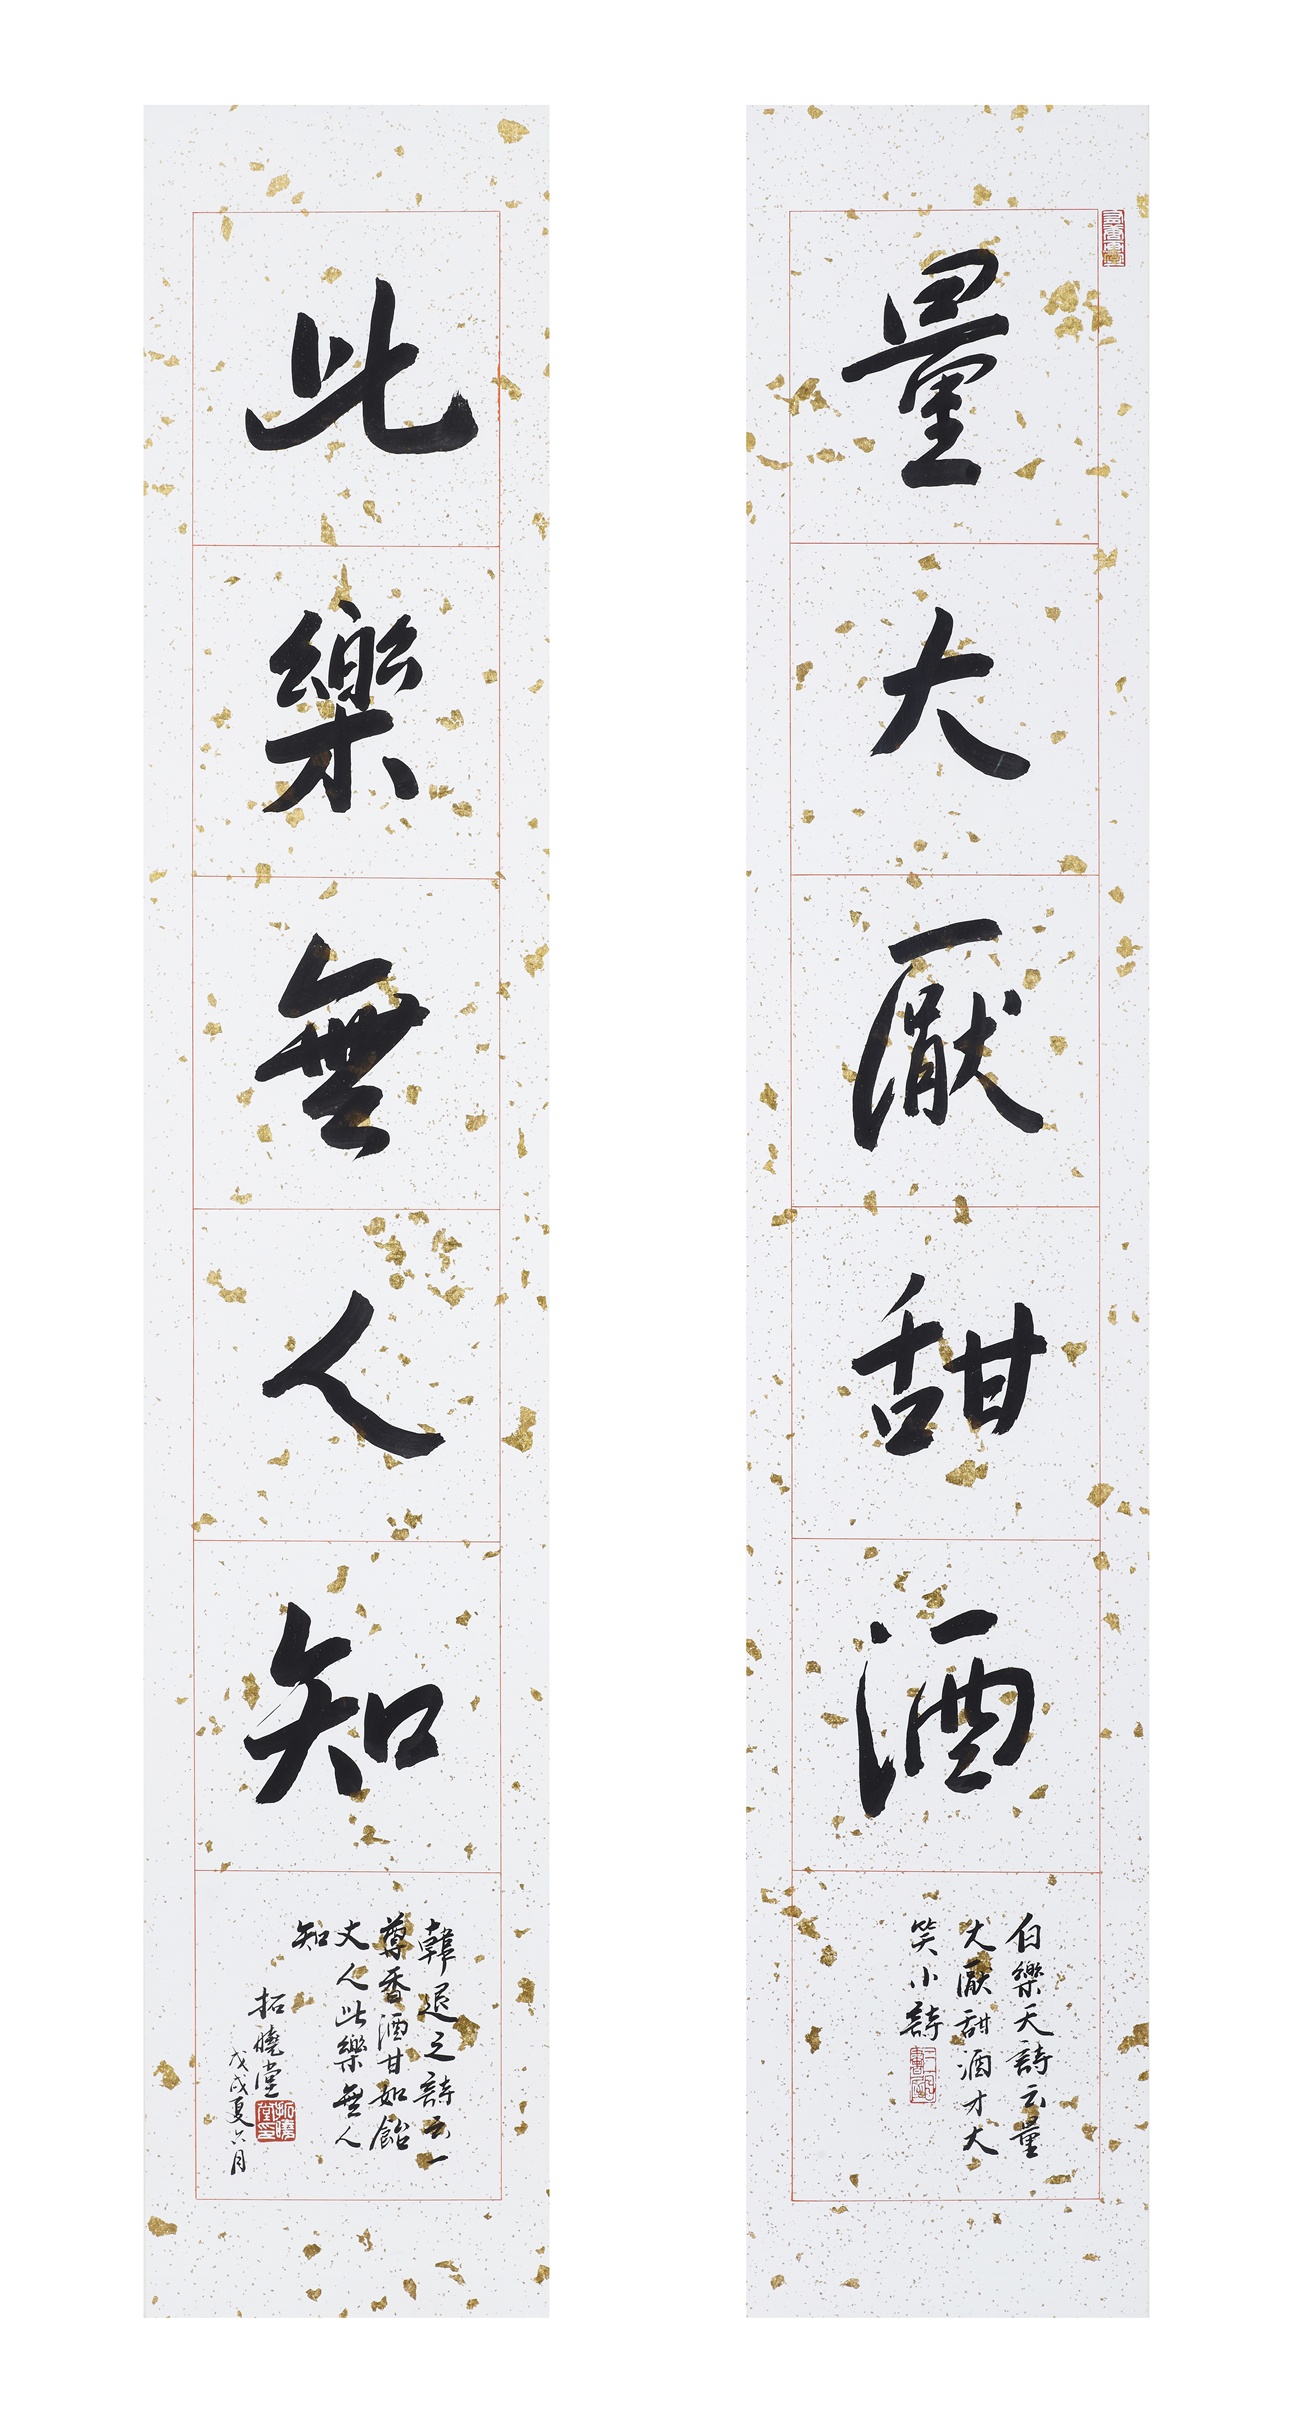 量大厭甜酒
白樂天詩云量
大厭甜酒才大
笑小詩
此樂無人知
韓退之詩云一
尊香酒甘如飴
丈人此樂無人
知
拓曉堂
戊戌夏六月